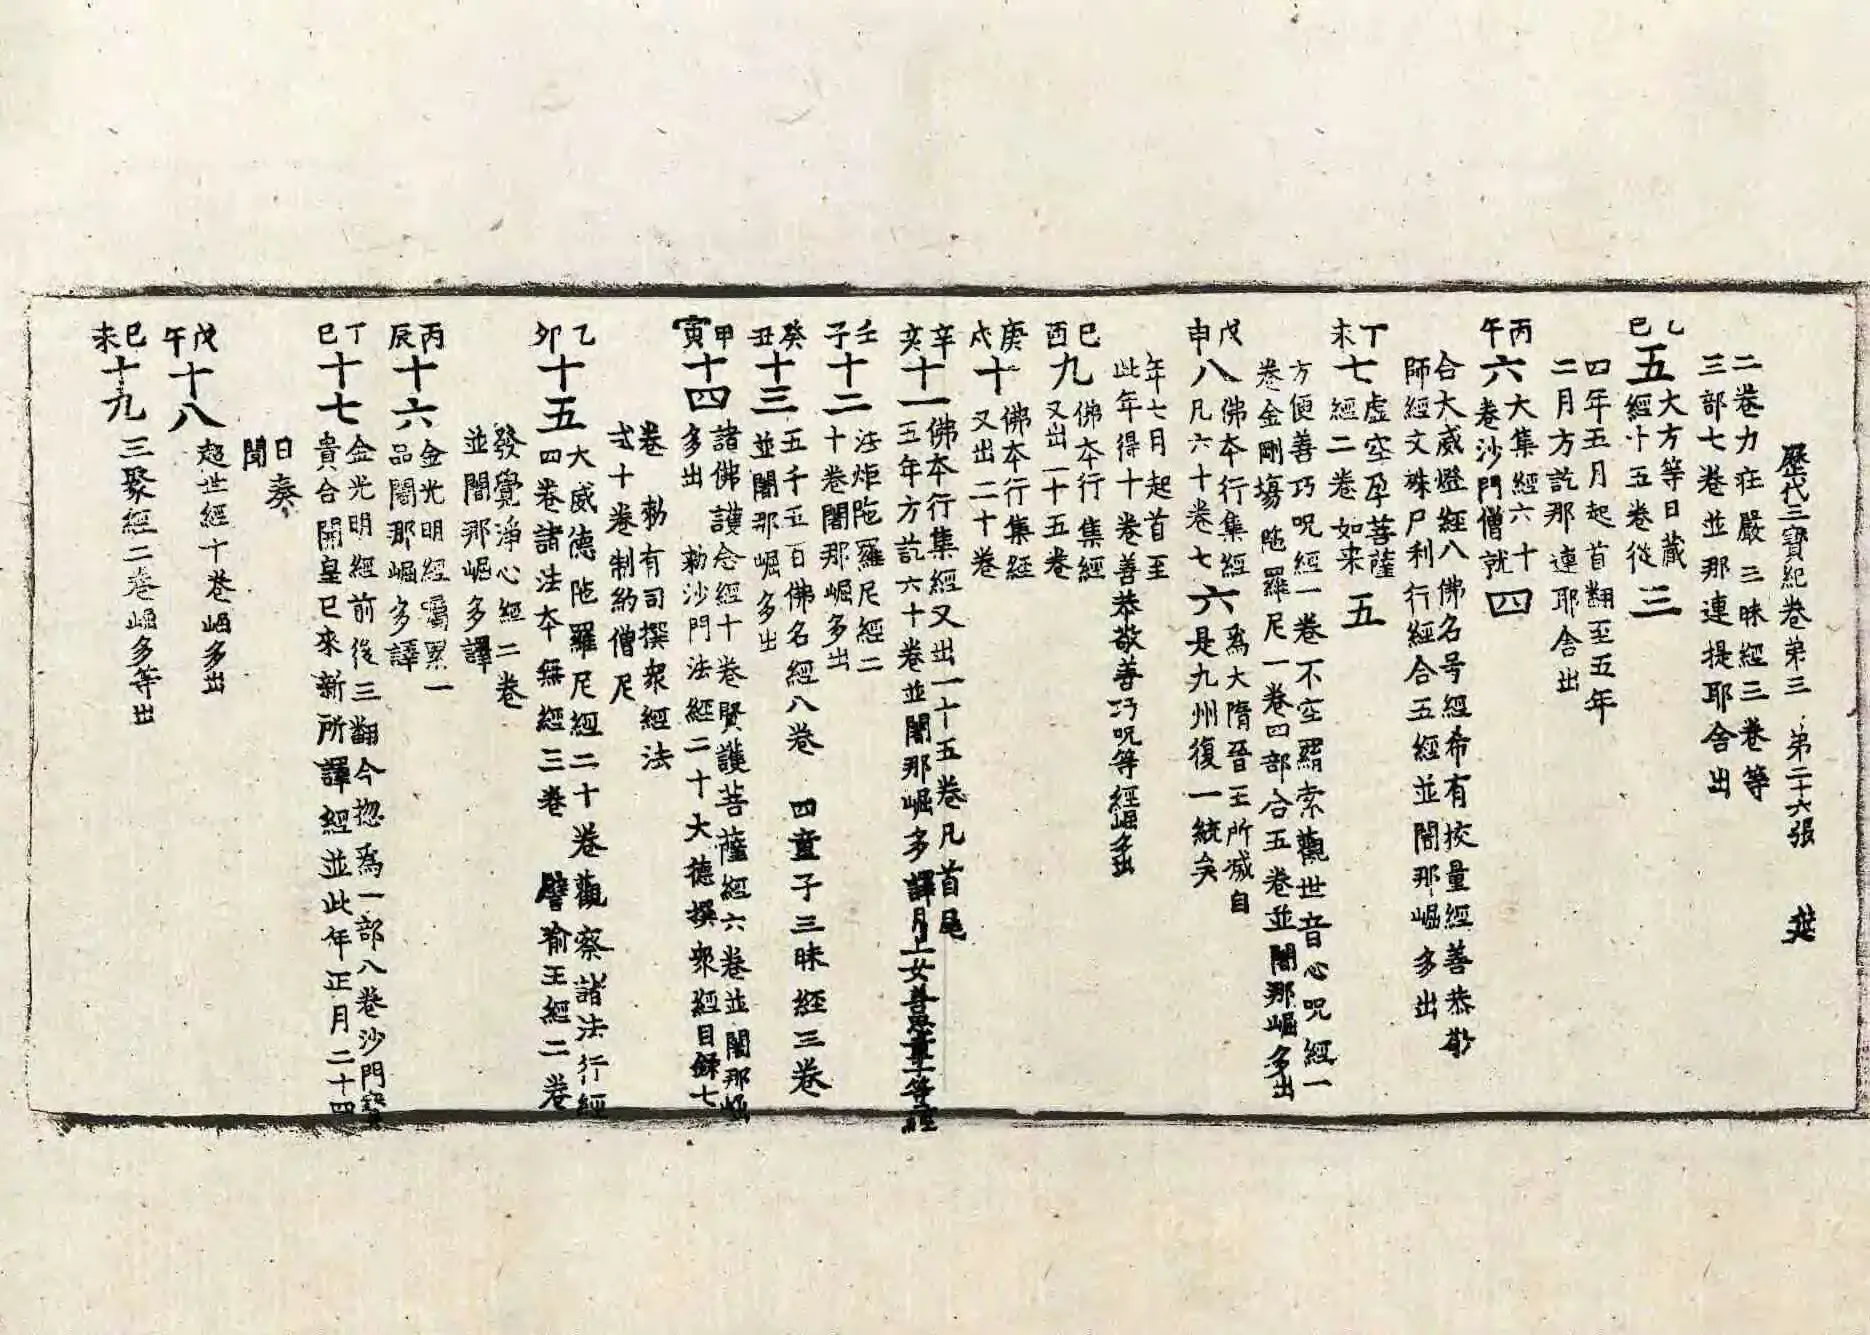 歷代三寶紀卷第三 第二十六張
二卷力莊嚴三昧經三卷等
三部七卷並那連提耶舍出
乙巳五
大方等日藏
經十五卷從
三
四年五月起首翻至五年
二月方訖那連耶舍出
丙午六
大集經六十
卷沙門僧就
四
合大威燈經八佛名号經希有挍量經善恭敬
師經文殊尸利行經合五經並闍那崛多出
丁未七
虛空孕菩薩
經二卷如来
五
方便善巧呪經一卷不空羂索觀世音心呪經一
卷金剛塲陁羅尼一卷四部合五卷並闍那崛多出
戊申八
佛夲行集經
凡六十卷七
六
爲大隋晉王所滅自
是九州復一統矣
年七月起首至
此年得十卷善恭敬善巧呪等經崛多出
巳酉九
佛夲行集經
又出一十五卷
庚戌十
佛夲行集經
又出二十卷
辛亥十一
佛夲行集經又出一十五卷凡首尾
五年方訖六十卷並闍那崛多譯月上女善思童子等經
壬子十二
法炬陁羅尼經二
十卷闍那崛多出
癸丑十三
五千五百佛名經八卷 四童子三昧經三卷
並闍那崛多出
甲寅十四
諸佛護念經十卷賢護菩薩經六卷並闍那崛
多出 勑沙門法經二十大德撰衆經目録七
卷 勑有司撰衆經法
式十卷制約僧尼
乙卯十五
大威德陁羅尼經二十卷觀察諸法行經
四卷諸法夲無經三卷 譬喻王經二卷
發覺淨心經二卷
並闍那崛多譯
丙辰十六
金光明經囑累一
品闍那崛多譯
丁巳十七
金光明經前後三翻今揔爲一部八卷沙門寶
貴合開皇已來新所譯經並此年正月二十四
日奏
聞
戊午十八
起世經十卷崛多出
巳未十九
三聚經二卷崛多等出